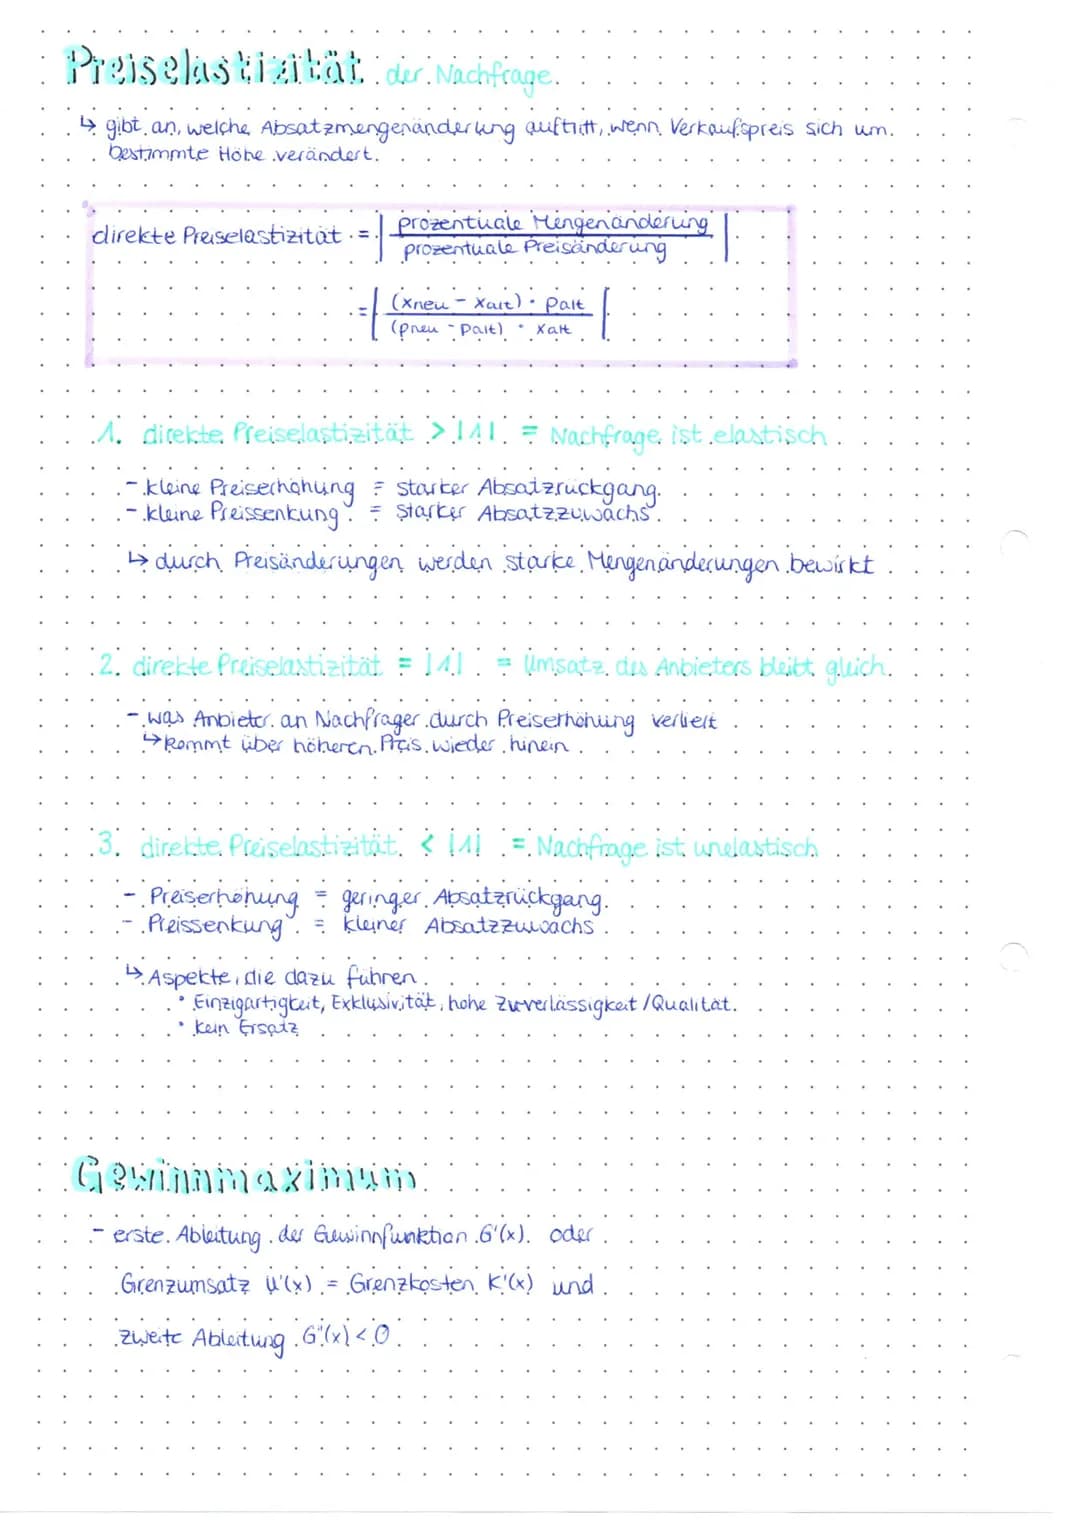 Preiselastizität der Nachfrage
↳ gibt an, welche Absatzmengenänderung auftritt, wenn Verkaufspreis sich um
bestimmte Höhe verändert.
direkte Preiselastizität = | prozentuale Mengenänderung / prozentuale Preisänderung |
= | (xneu - xalt) · palt / (pneu - palt) · xalt |
1. direkte Preiselastizität > |1| = Nachfrage ist elastisch
- kleine Preiserhöhung = starker Absatzrückgang
- kleine Preissenkung = starker Absatzzuwachs
↳ durch Preisänderungen werden starke Mengenänderungen bewirkt
2. direkte Preiselastizität = |1| = Umsatz des Anbieters bleibt gleich
- was Anbieter an Nachfrager durch Preiserhöhung verliert
↳ kommt über höheren Preis wieder hinein
3. direkte Preiselastizität < |1| = Nachfrage ist unelastisch
- Preiserhöhung = geringer Absatzrückgang
- Preissenkung = kleiner Absatzzuwachs
↳ Aspekte, die dazu führen
• Einzigartigkeit, Exklusivität, hohe Zuverlässigkeit / Qualität
• kein Ersatz
Gewinnmaximum
- erste Ableitung der Gewinnfunktion G'(x) oder
Grenzumsatz U'(x) = Grenzkosten K'(x) und
zweite Ableitung G"(x) < 0